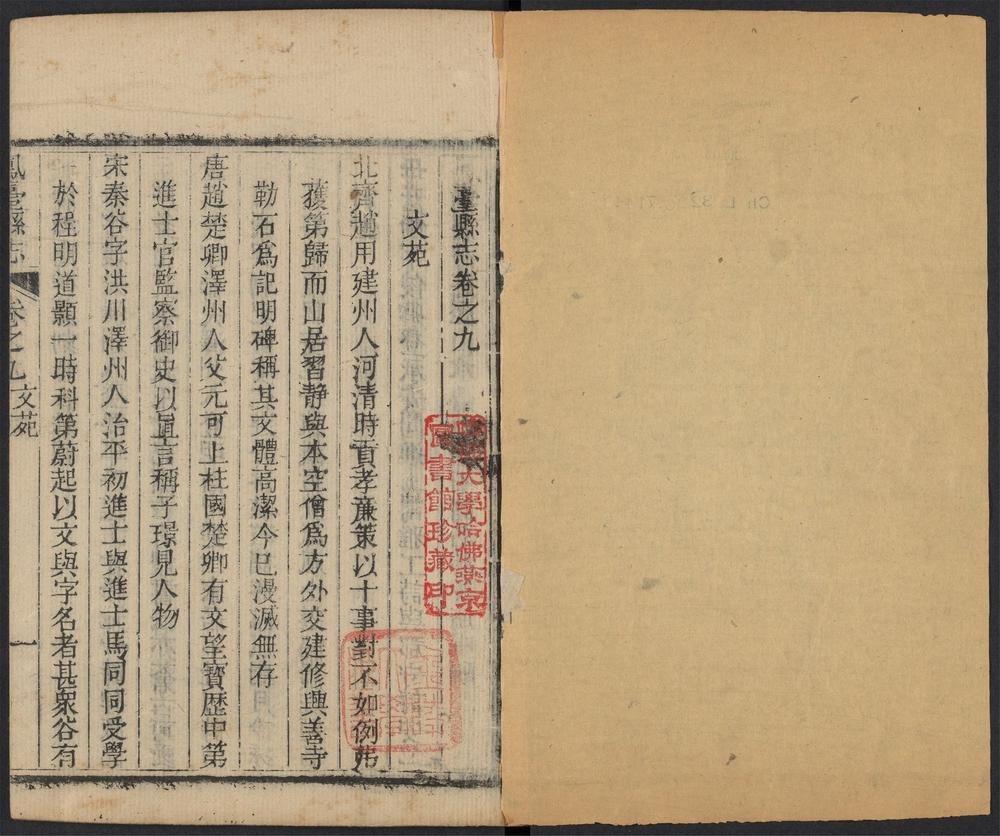 臺縣志卷之九
文苑
北齊趙用建州人河清時貢孝廉策以十事對不如例弗
獲第歸而山居習靜與本空僧爲方外交建修興善寺
勒石爲記明碑稱其文體高潔今已漫滅無存
唐趙楚卿澤州人父元可上柱國楚卿有文望寶歷中第
進士官監察御史以直言稱子璟見人物
宋秦谷字洪川澤州人治平初進士與進士馬同同受學
於程明道顥一時科第蔚起以文與字名者甚衆谷有
鳳臺縣志
卷之九 文苑
一
大學哈佛燕京
圖書館珍藏印